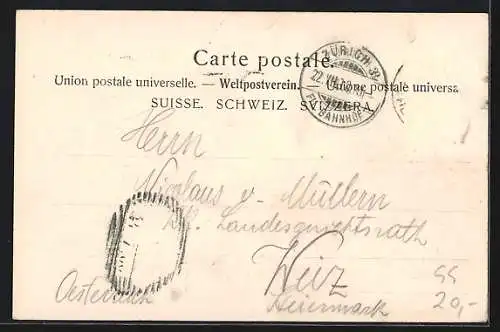 Carte postale.
Union postale universelle. — Weltpostverein. — Unione postale universa
SUISSE. SCHWEIZ. SVIZZERA.
ZÜRICH
22. VII.
BAHNHOF
Herrn
Nicolaus v. Müllern
k.k. Landesgerichtsrath
Weiz
Steiermark
Oesterreich
SS
20,-